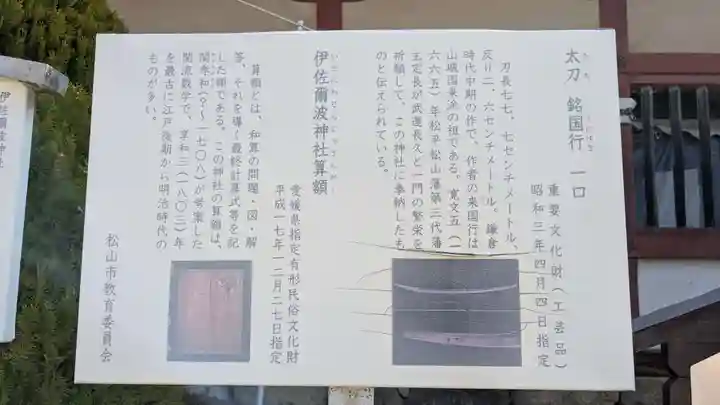 太刀 銘国行 一口
重要文化財(工芸品)
昭和三年四月四日指定
刀長七七.七センチメートル、
反り二.六センチメートル。鎌倉
時代中期の作で、作者の来国行は
山城国来派の祖である。寛文五(一
六六五)年松平松山藩第三代藩
主定長が武運長久と一門の繁栄を
祈願して、この神社に奉納したも
のと伝えられている。
伊佐爾波神社算額
愛媛県指定有形民俗文化財
平成一七年一二月二七日指定
算額とは、和算の問題・図・解
答、それを導く最終計算式等を記
した額である。この神社の算額は、
関孝和(?~一七〇八)が考案した
関流数学で、享和三(一八〇三)年
を最古に江戸後期から明治時代の
ものが多い。
松山市教育委員会
伊佐爾波神社